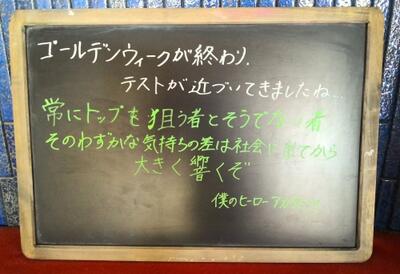 ゴールデンウィークが終わり.
テストが近づいてきましたね...
常にトップを狙う者とそうでない者
そのわずかな気持ちの差は社会に出てから
大きく響くぞ
僕のヒーローアカデミア